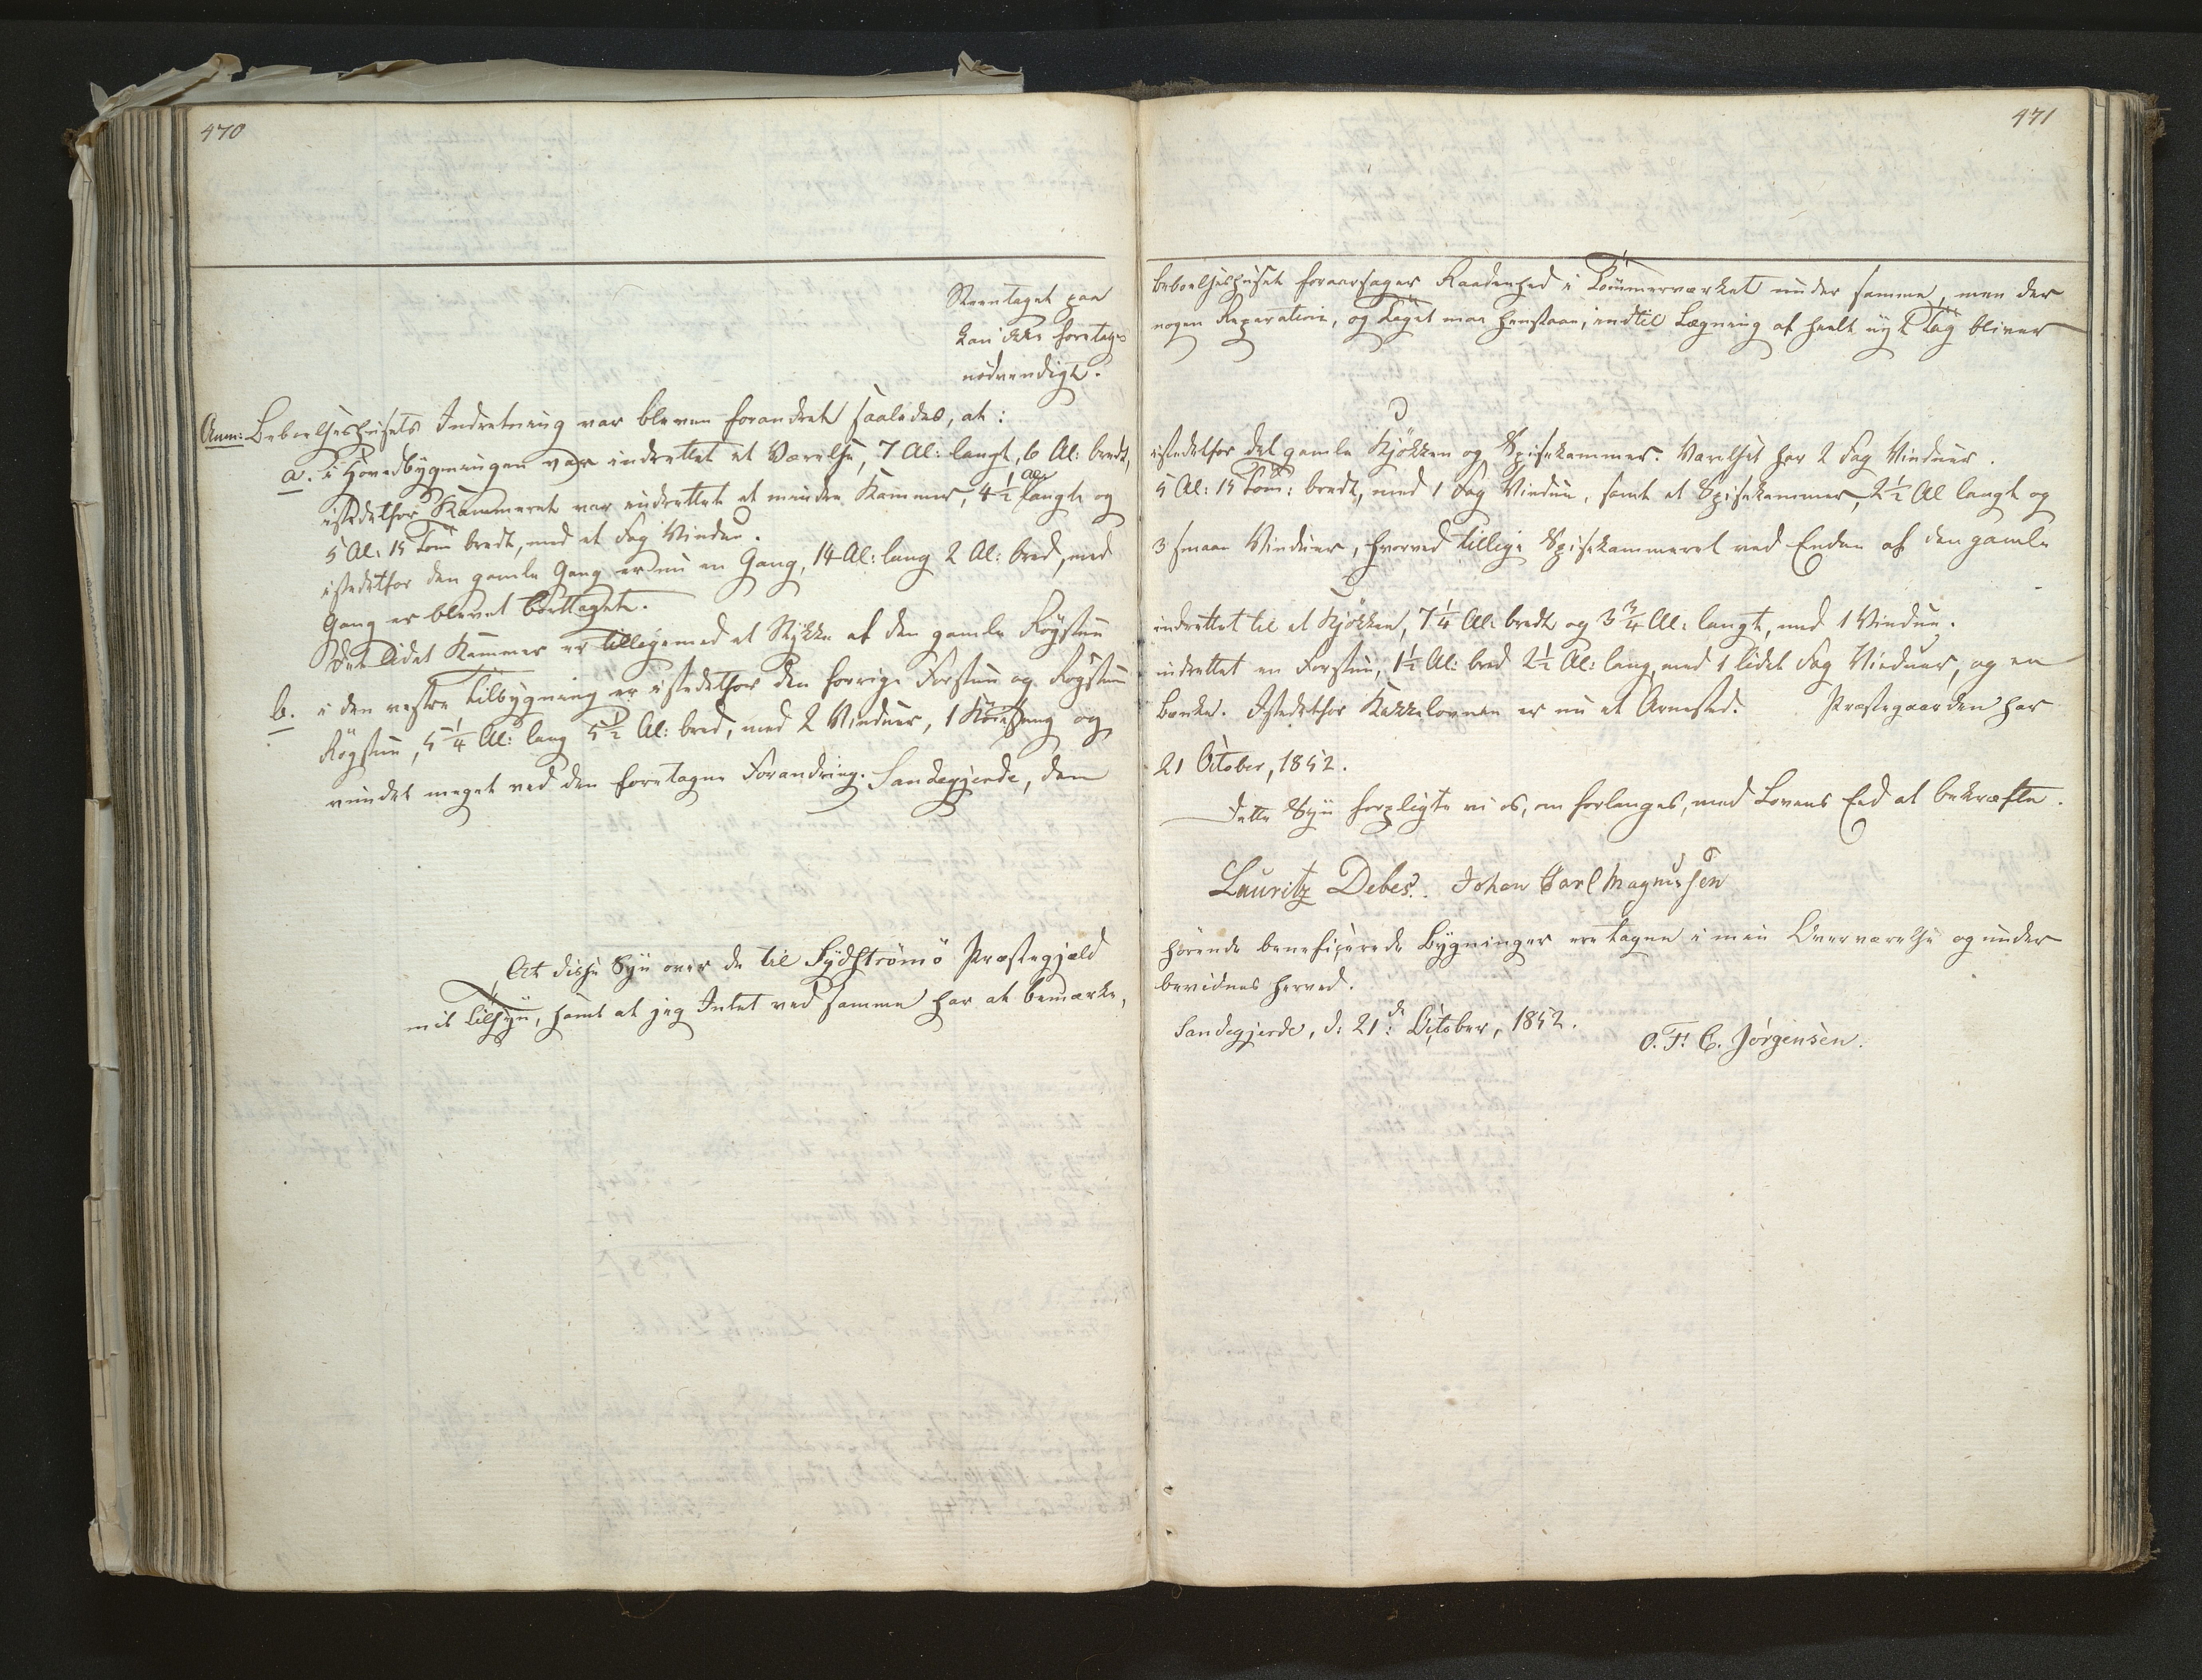 470
471
Steentaget paa
beboelseshuset foraarsager Raadenhed i Tømmerværket under samme, men der
kan ikke foretages
nogen Reparation, og Taget maa henstaae, indtil Lægning af heelt nyt Tag bliver
nødvendigt.
Anm: Beboelseshusets Indretning var bleven forandret saaledes, at:
a. i Hovedbygningen var indrettet et Værelse, 7 Al: langt, 6 Al: bredt,
istedetfor det gamle Kjøkken og Spisekammer. Værelset har 2 Fag Vinduer.
istedetfor Kammeret var indrettet et mindre Kammer, 4½ Al. langt og
5 Al: 15 Tom: bredt, med 1 Fag Vindue, samt et Spisekammer, 2½ Al langt og
5 Al: 15 Tom bredt, med et Fag Vindue.
istedetfor den gamle Gang er nu en Gang, 14 Al: lang 2 Al: bred, med
3 smaae Vinduer, hvorved tillige Spisekammeret ved Enden af den gamle
Gang er blevet borttaget.
Det lidet Kammer er tilligemed et Stykke af den gamle Røgstue
indrettet til et Kjøkken, 7¼ Al: bredt og 3¾ Al: langt, med 1 Vindue.
b. i den vestre Tilbygning er istedetfor den forrige Forstue og Røgstue
indrettet en Forstue, 1½ Al: bred 2½ Al: lang, med 1 lidet Fag Vinduer, og en
Røgstue, 5¼ Al: lang 5½ Al: bred, med 2 Vinduer, 1 Køieseng og
Bænke. Istedetfor Kakkelovnen er nu et Arnested. Præstegaarden har
vundet meget ved den foretagne Forandring. Sandegjerde, den
21 October, 1852.
Dette Syn forpligte vi os, om forlanges, med Lovens Eed at bekræfte.
Lauritz Debes. Johan Carl Magnussen
At disse Syn over de til Sydstrømø Præstegjæld
hørende beneficerede Bygninger ere tagne i min Overværelse og under
mit Tilsyn, samt at jeg Intet ved samme har at bemærke,
bevidnes herved.
Sandegjerde, d: 21de October, 1852.
O. F. C. Jørgensen.